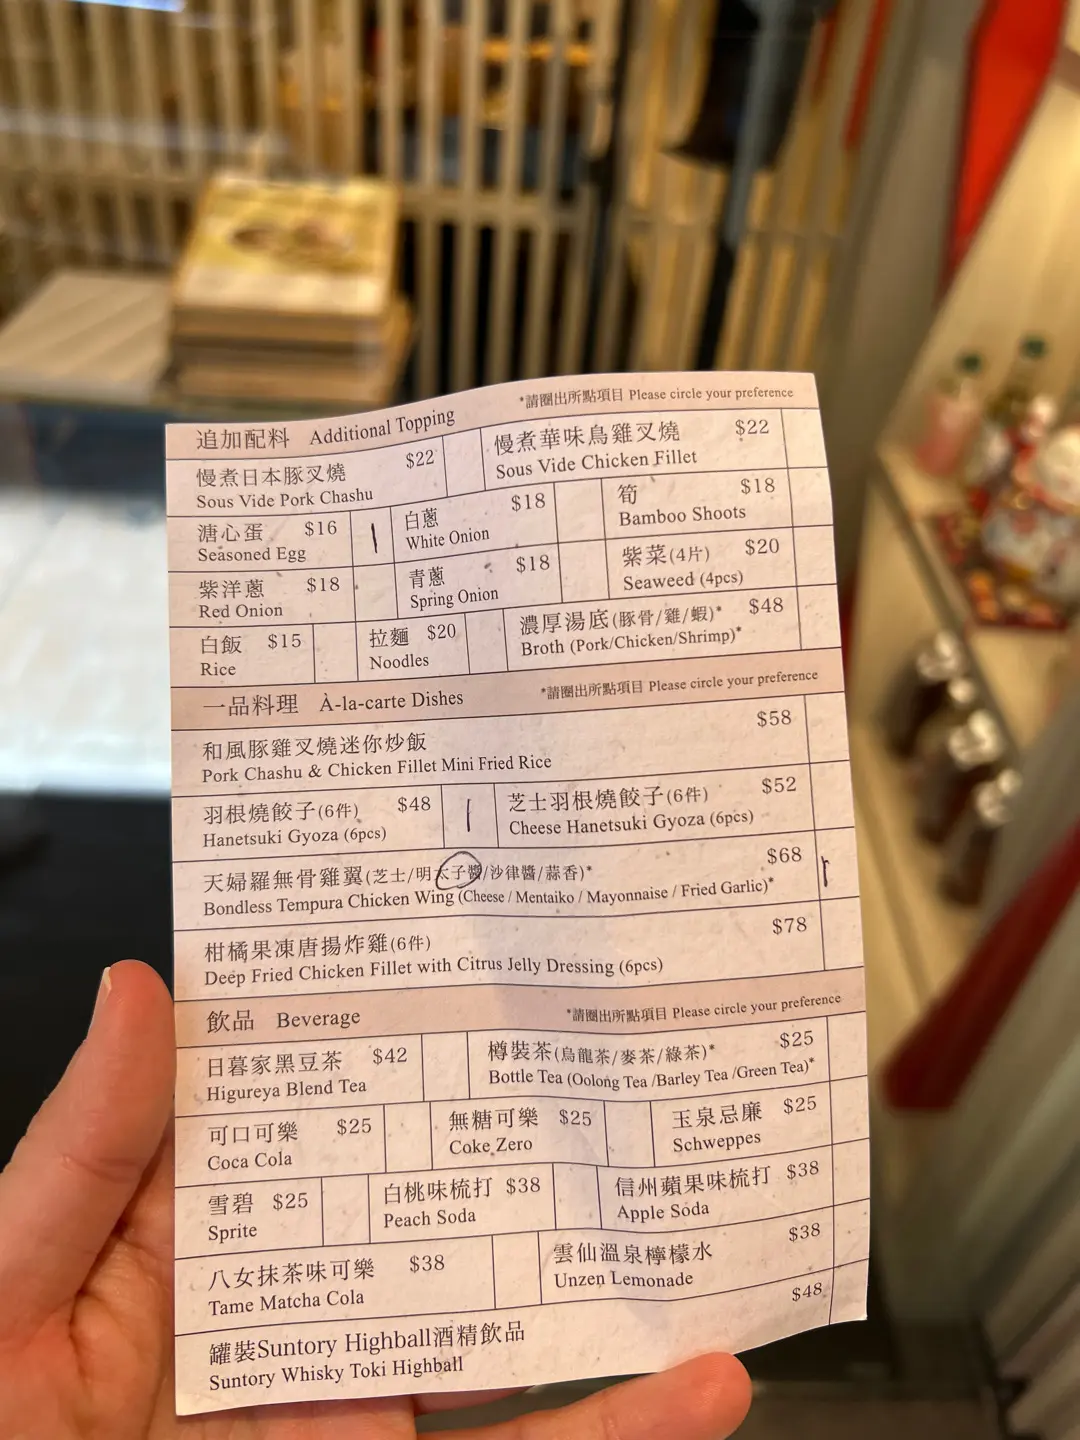 追加配料 Additional Topping *請圈出所點項目 Please circle your preference
慢煮日本豚叉燒 $22
Sous Vide Pork Chashu
慢煮華味鳥雞叉燒 $22
Sous Vide Chicken Fillet
溏心蛋 $16
Seasoned Egg
白蔥 $18
White Onion
筍 $18
Bamboo Shoots
紫洋蔥 $18
Red Onion
青蔥 $18
Spring Onion
紫菜(4片) $20
Seaweed (4pcs)
白飯 $15
Rice
拉麵 $20
Noodles
濃厚湯底(豚骨/雞/蝦)* $48
Broth (Pork/Chicken/Shrimp)*
一品料理 À-la-carte Dishes *請圈出所點項目 Please circle your preference
和風豚雞叉燒迷你炒飯 $58
Pork Chashu & Chicken Fillet Mini Fried Rice
羽根燒餃子(6件) $48
Hanetsuki Gyoza (6pcs)
芝士羽根燒餃子(6件) $52
Cheese Hanetsuki Gyoza (6pcs)
天婦羅無骨雞翼(芝士/明太子醬/沙律醬/蒜香)* $68
Bondless Tempura Chicken Wing (Cheese / Mentaiko / Mayonnaise / Fried Garlic)*
柑橘果凍唐揚炸雞(6件) $78
Deep Fried Chicken Fillet with Citrus Jelly Dressing (6pcs)
飲品 Beverage *請圈出所點項目 Please circle your preference
日暮家黑豆茶 $42
Higureya Blend Tea
樽裝茶(烏龍茶/麥茶/綠茶)* $25
Bottle Tea (Oolong Tea /Barley Tea /Green Tea)*
可口可樂 $25
Coca Cola
無糖可樂 $25
Coke Zero
玉泉忌廉 $25
Schweppes
雪碧 $25
Sprite
白桃味梳打 $38
Peach Soda
信州蘋果味梳打 $38
Apple Soda
八女抹茶味可樂 $38
Tame Matcha Cola
雲仙溫泉檸檬水 $38
Unzen Lemonade
罐裝Suntory Highball酒精飲品 $48
Suntory Whisky Toki Highball